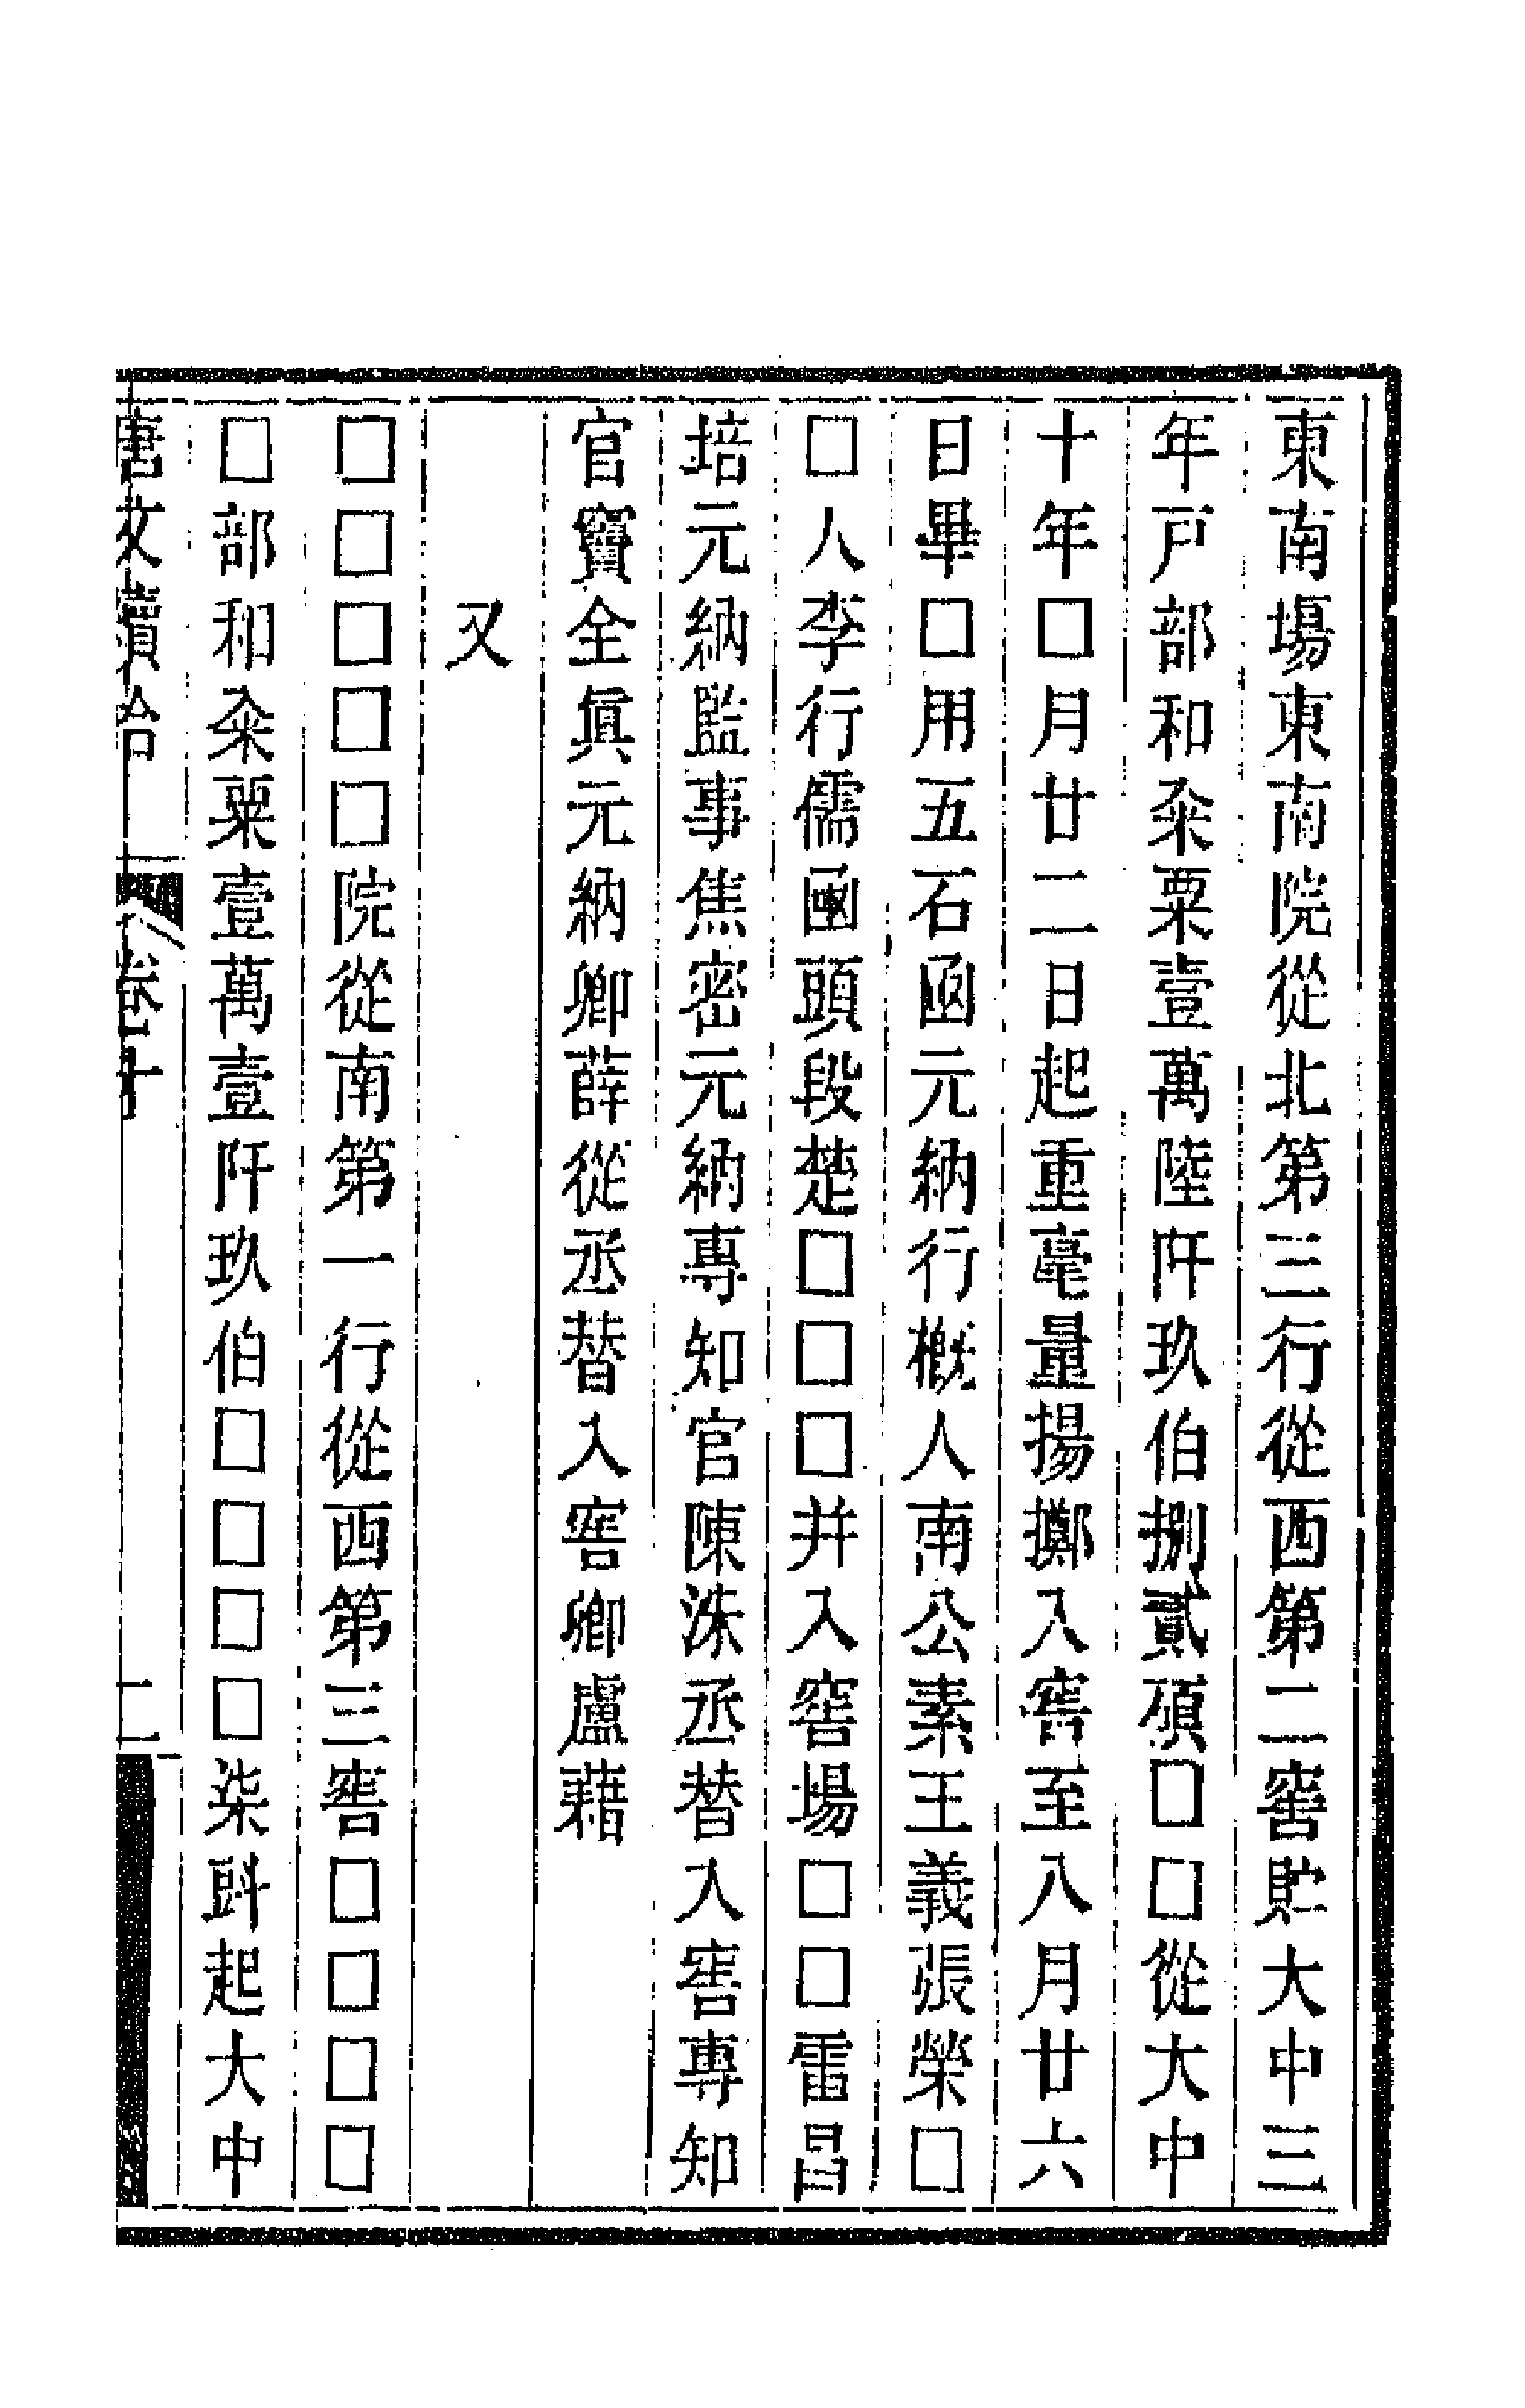 東南場東南院從北第三行從西第二窖貯大中三
年戸部和籴粟壹萬陸阡玖伯捌貳碩□□從大中
十年□月廿二日起重毫量揚擲入窖至八月廿六
日畢□用五石函元納行概人南公素王義張榮□
□人李行儒函頭段楚□□□并入窖場□□雷昌
培元納監事焦密元納專知官陳洙丞替入窖專知
官竇全眞元納卿薛從丞替入窖卿盧藉
又
□□□□□院從南第一行從西第三窖□□□□
□部和籴粟壹萬壹阡玖伯□□□□柒㪷起大中
唐文續拾 卷十 二